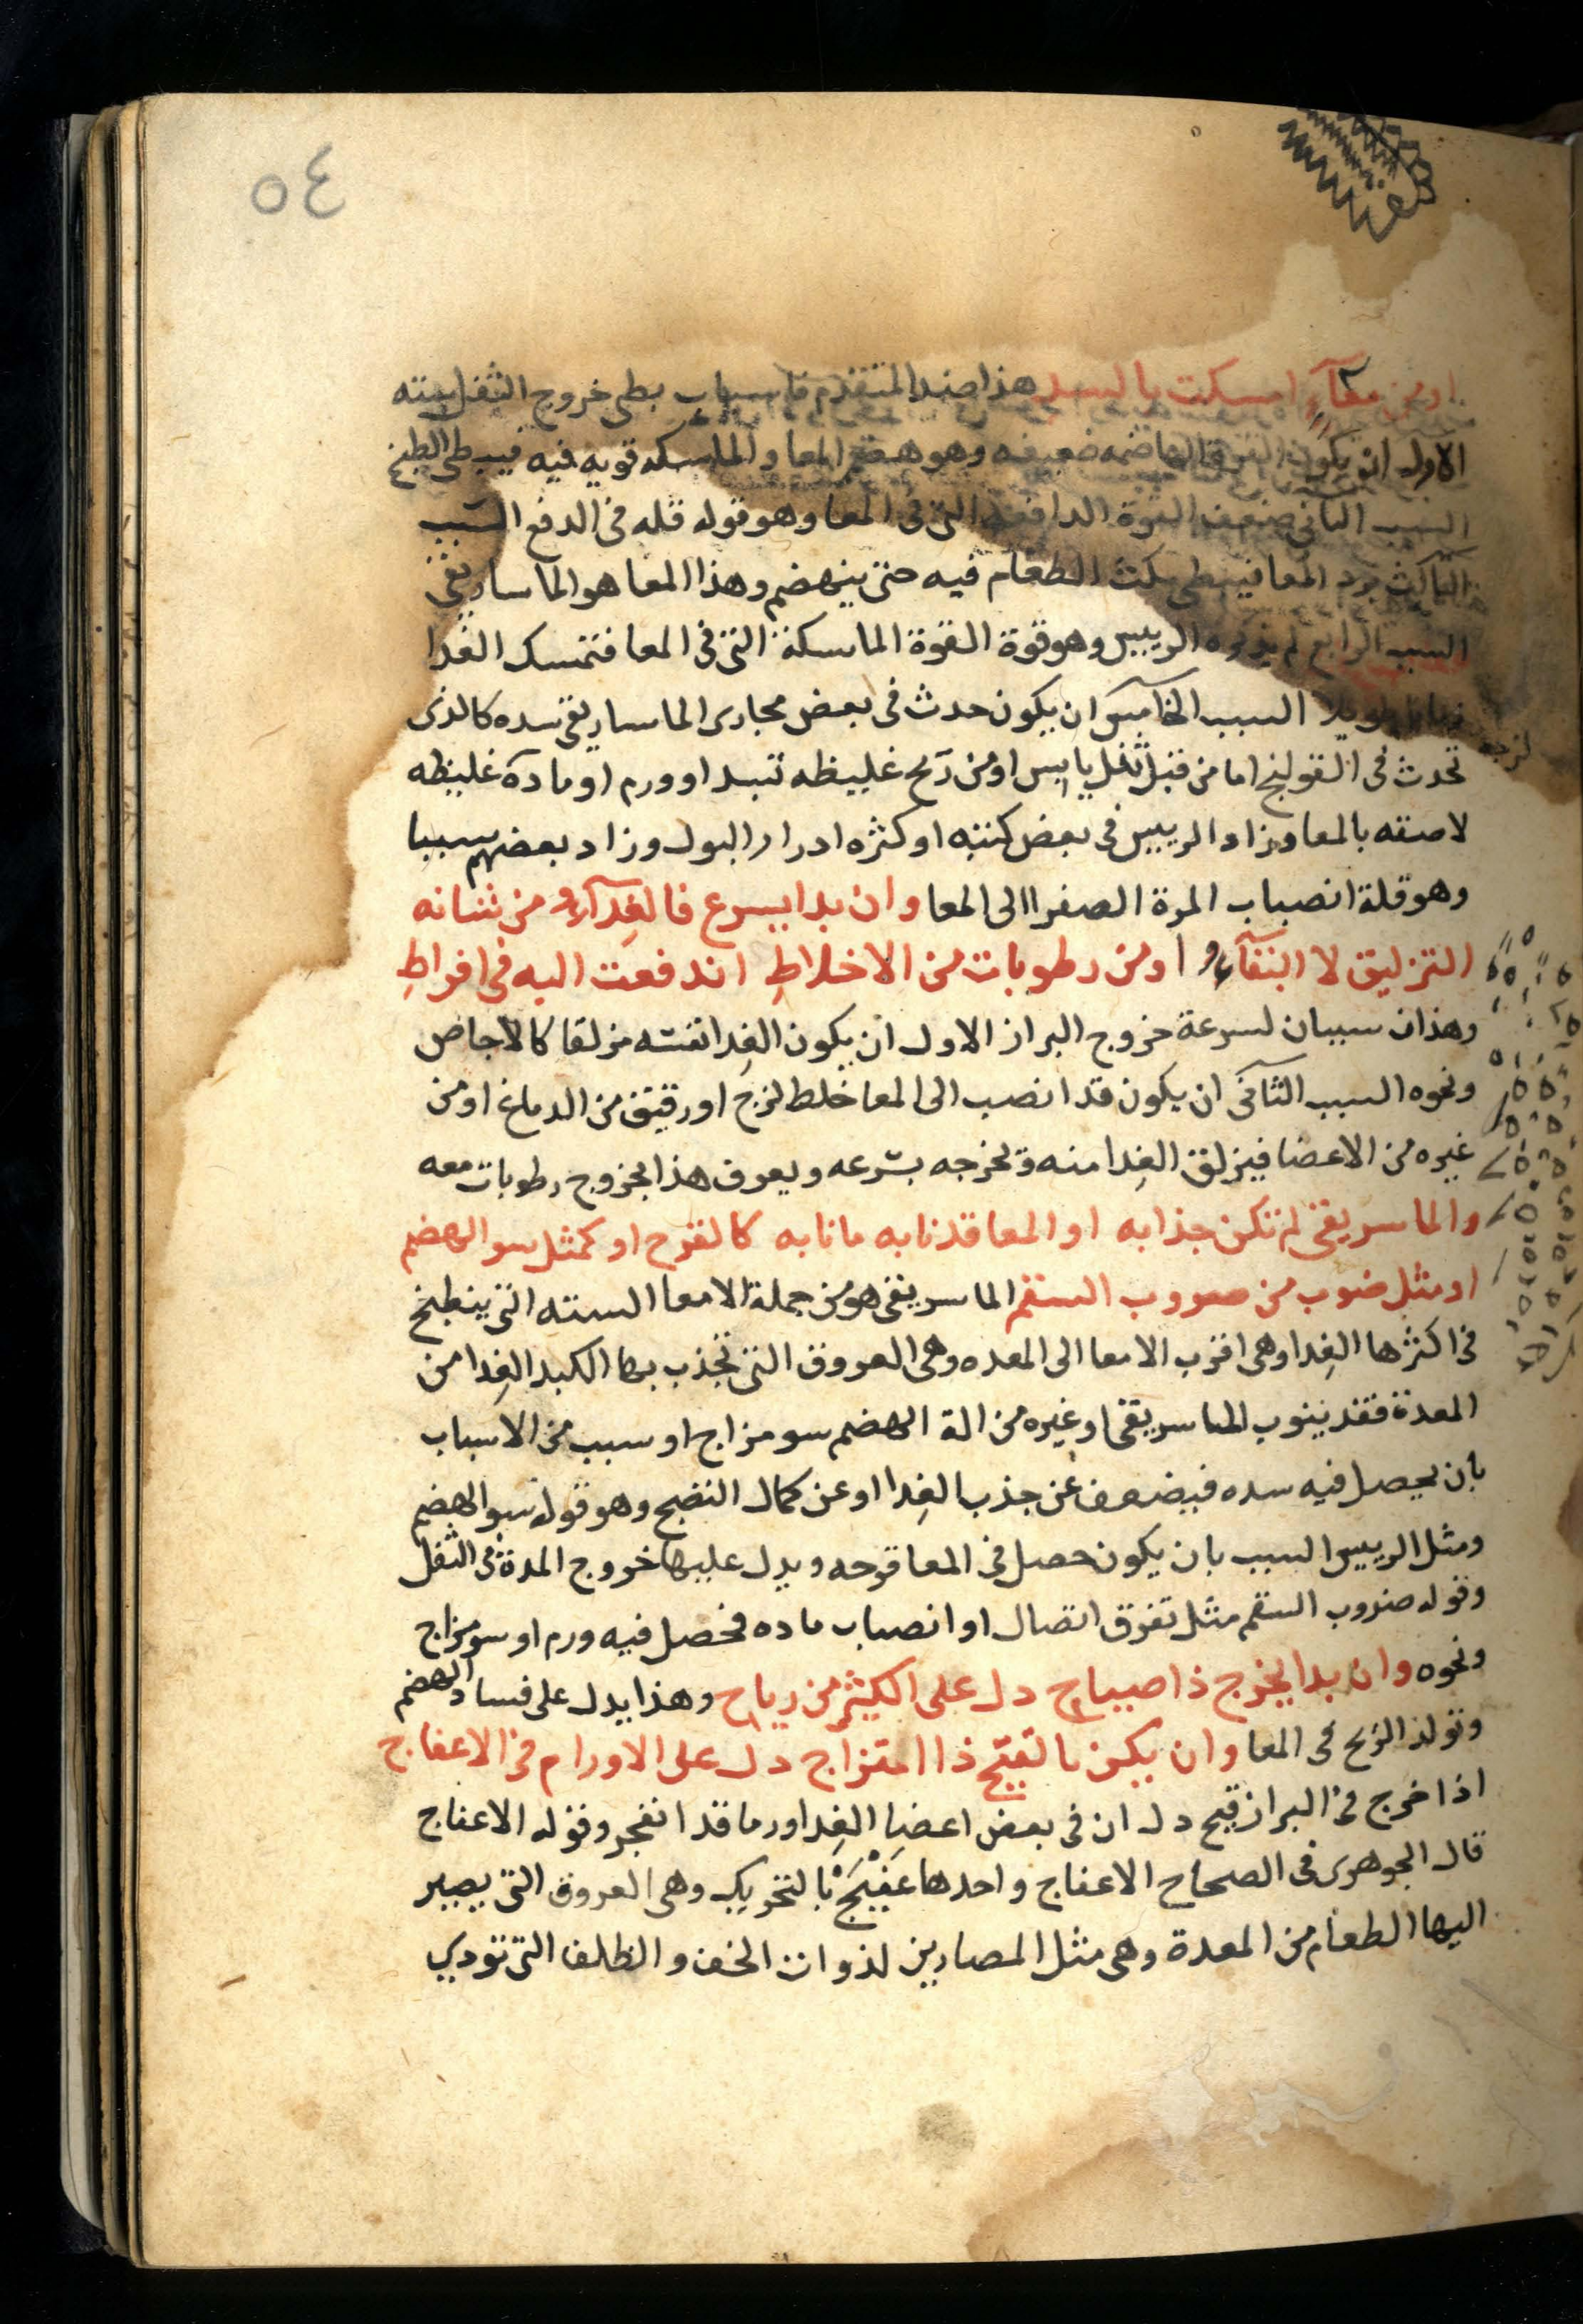 ٥٤
او من معآءٍ امسكت بالسد هذا ضد المتقدم فاسباب بطى خروج الثفل سته
الاول ان يكون القوة الهاضمه ضعيفه وهو هضم المعا والماسكه قويه فيه فيبطى الطبخ
السبب الثانى ضعف القوة الدافعه التى فى المعا وهو قوله قله فى الدفع السبب
الثالث برد المعا فيبطى مكث الطعام فيه حتى ينهضم وهذا المعا هو الماساريقى
السبب الرابع لم يذكره الرييس وهو قوة القوة الماسكة التى فى المعا فتمسك الغدا
زمانا طويلا السبب الخامس ان يكون حدث فى بعض مجارى الماساريقى سده كالذى
تحدث فى القولنج اما من قبل ثفل يابس او من ريح غليظه تسد او ورم او مادة غليظه لزجه
لاصقه بالمعا وزاد الرييس فى بعض كتبه او كثره ادرار البول وزاد بعضهم سببا
وهو قلة انصباب المرة الصفرا الى المعا وان بدا يسرع فالغدآءُ من شانه
التزليق لا البقآءُ او من رطوبات من الاخلاطِ اندفعت اليه فى افراطِ
وهذان سببان لسرعة خروج البراز الاول ان يكون الغدا نفسه مزلقا كالاجاص
ونحوه السبب الثانى ان يكون قد انصب الى المعا خلط لزج او رقيق من الدماغ او من
غيره من الاعضا فيزلق الغدا منه وتخرجه بسرعه ويعرف هذا بخروج رطوبات معه
والماسريقى لم تكن جذابه او المعا قد نابه ما نابه كالقرح او كمثل سو الهضم
او مثل ضروب من صروب السقم الماسريقى هو من جملة الامعا السته التى ينطبخ
فى اكثرها الغدا وهى اقرب الامعا الى المعده وهى العروق التى تجذب بها الكبد الغدا من
المعدة فقد ينوب الماسريقى او غيره من الة الهضم سو مزاج او سبب من الاسباب
بان يحصل فيه سده فيضعف عن جذب الغدا او عن كمال النضج وهو قوله سو الهضم
ومثل الرييس السبب بان يكون حصل فى المعا قرحه ويدل عليها خروج المدة فى الثفل
وقوله ضروب السقم مثل تفرق اتصال او انصباب ماده فحصل فيه ورم او سو مزاج
ونحوه وان بدا يخرج ذا صياح دل على الكثير من رياح وهذا يدل على فساد الهضم
وتولد الريح فى المعا وان يكن بالقيح ذا امتزاج دل على الاورام فى الاعفاج
اذا خرج فى البراز قيح دل ان فى بعض اعضا الغدا ورما قد انفجر وقوله الاعفاج
قال الجوهرى فى الصحاح الاعفاج واحدها عفج بالتحريك وهى العروق التى يصير
اليها الطعام من المعدة وهى مثل المصارين لذوات الخف والظلف التى تودي